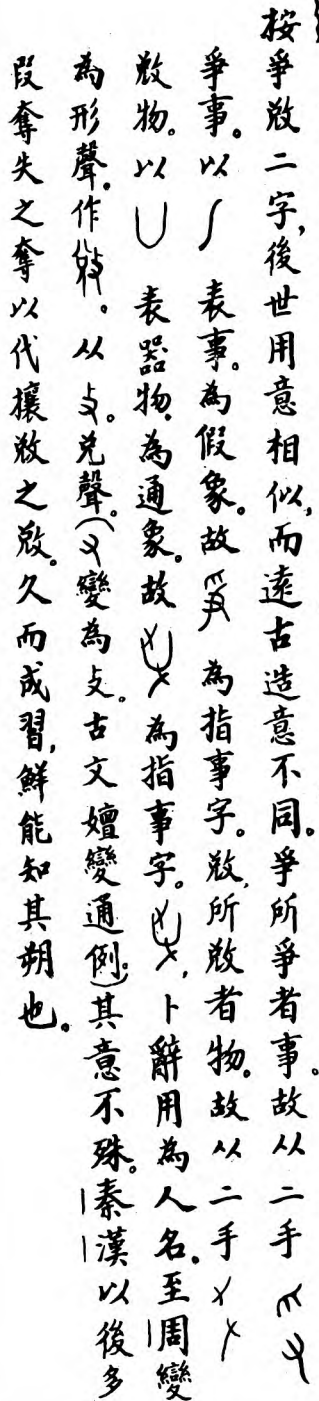 按爭敚二字，後世用意相似，而遠古造意不同。爭所爭者事。故从二手
爭事。以∫表事。為假象。故為指事字。敚，所敚者物。故从二手
敚物。以∪表器物，為通象。故為指事字。，卜辭用為人名。至周變
為形聲。作敚。从攴。兌聲。（又變為攴。古文嬗變通例；）其意不殊。秦漢以後多
叚奪失之奪以代攘敚之敚。久而成習，鮮能知其朔也。